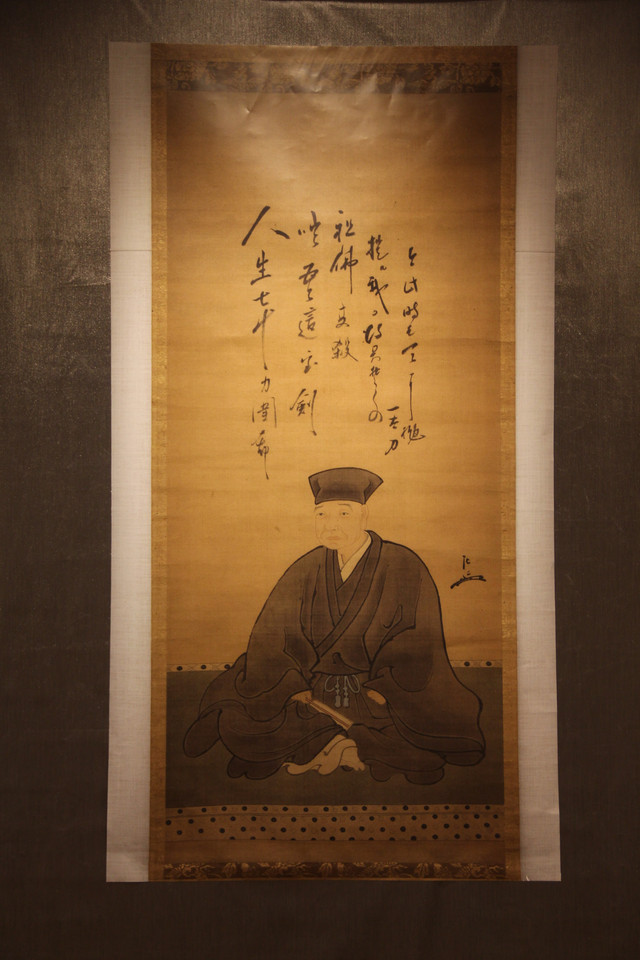 人生七十力囲希
咄吾這宝剣
祖佛共殺
提る我得具足の
一太刀
今此時そ天に抛